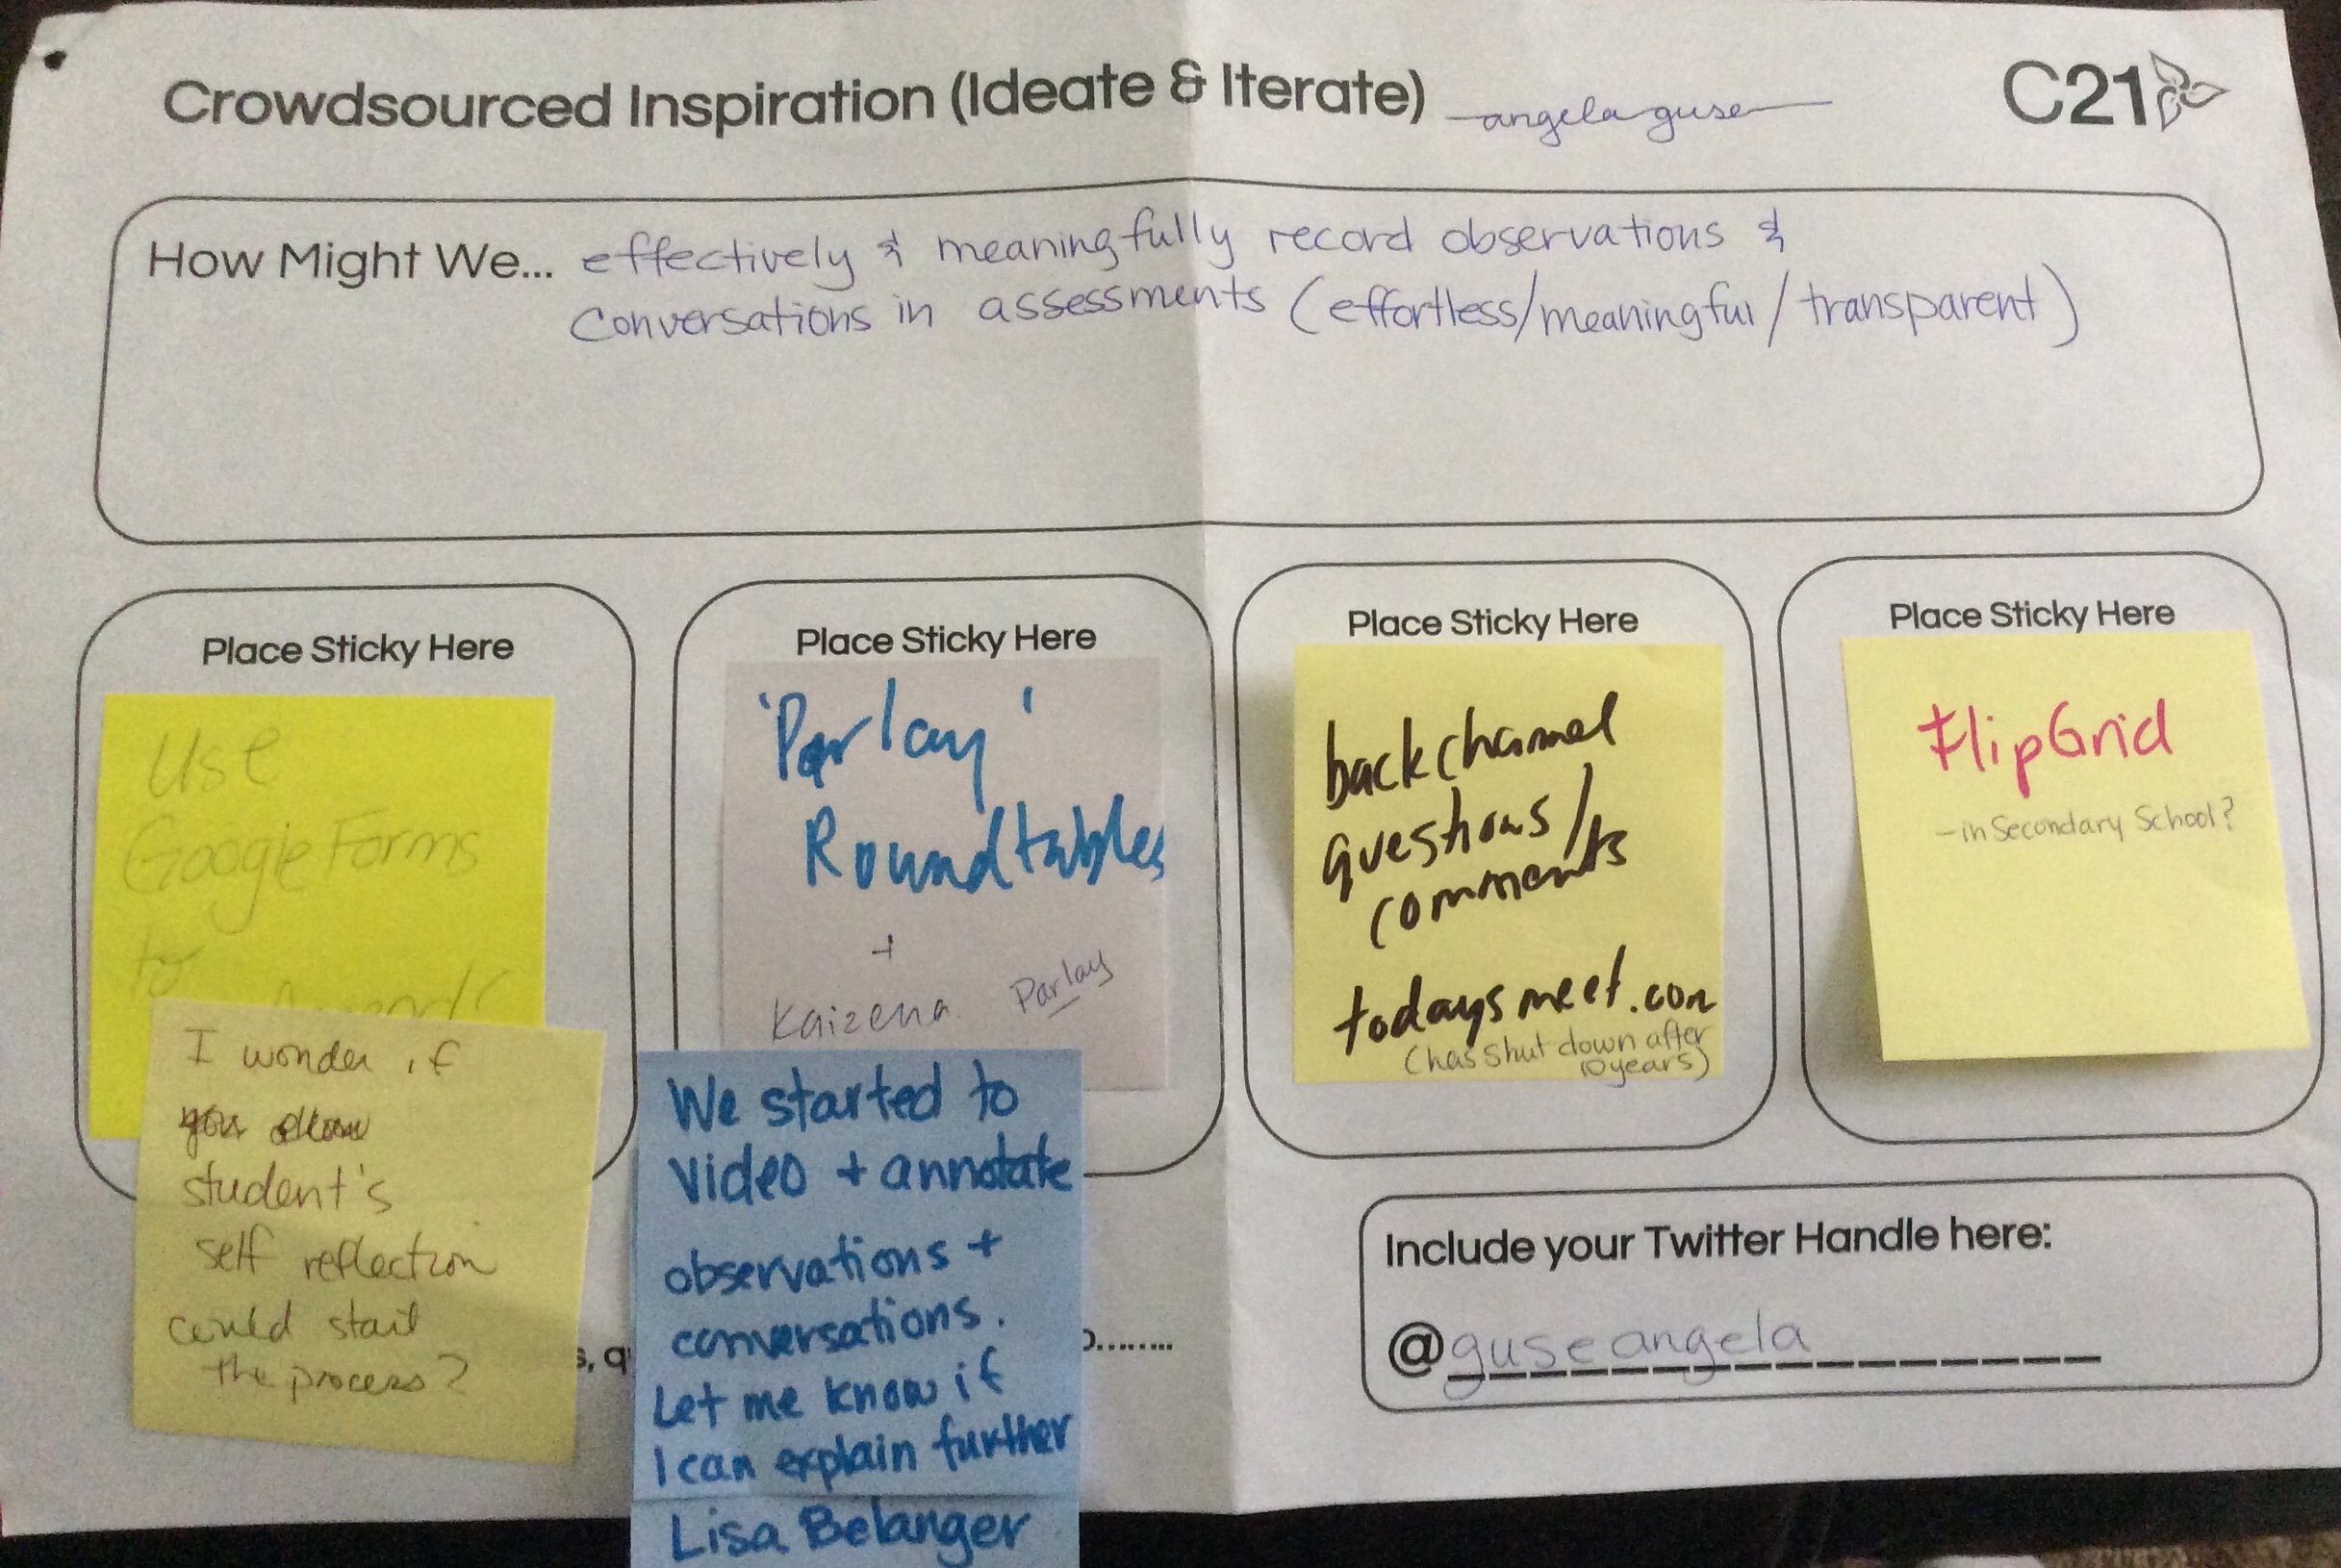 Crowdsourced Inspiration (Ideate & Iterate) angela guse
C21
How Might We... effectively & meaningfully record observations &
conversations in assessments (effortless/meaningful/transparent)
Place Sticky Here
Use
Google Forms
to
I wonder if
you allow
student's
self reflection
could start
the process?
Place Sticky Here
'Parlay'
Roundtables
+
Kaizena Parlay
We started to
video + annotate
observations +
conversations.
Let me know if
I can explain further
Lisa Belanger
Place Sticky Here
backchannel
questions/
comments
todaysmeet.com
(has shut down after
10 years)
Place Sticky Here
FlipGrid
- in Secondary School?
s, q
o.......
Include your Twitter Handle here:
@guseangela